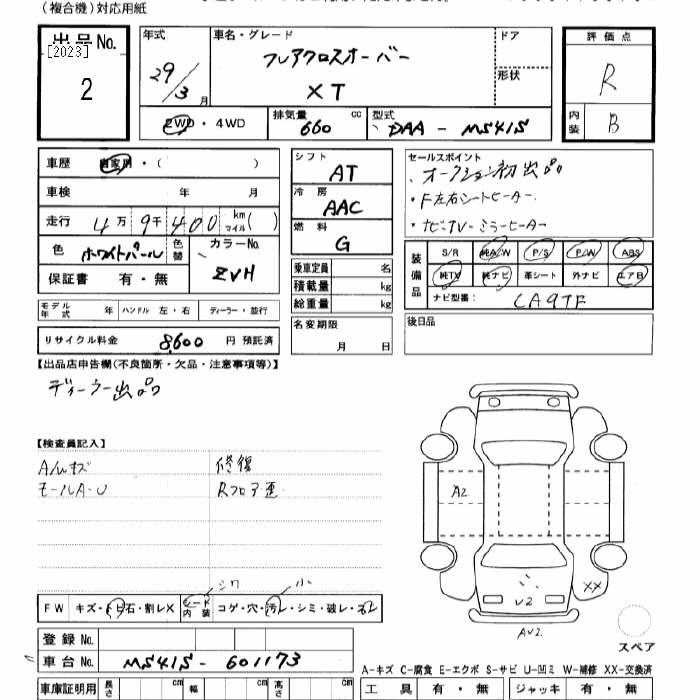 (複合機)対応用紙
出品No.
[2023]
2
年式
29/3月
車名・グレード
フレアクロスオーバー
XT
ドア
形状
評価点
R
内装
B
2WD・4WD
排気量
660 cc
型式
DAA - MS41S
車歴 自家用・( )
車検 年 月
走行 4万9千400 km マイル( )
色 ホワイトパール 色替
カラーNo.
ZVH
保証書 有・無
モデル年式 年 ハンドル 左・右 ディーラー・並行
リサイクル料金 8,600 円 預託済
シフト
AT
冷房
AAC
燃料
G
乗車定員 名
積載量 kg
総重量 kg
名変期限
月 日
セールスポイント
・オークション初出品
・F左右シートヒーター
・ナビ・TV・ミラーヒーター
装備品
S/R 純A/W P/S P/W ABS
純TV 純ナビ 革シート 外ナビ エアB
ナビ型番: CA9TF
後日品
【出品店申告欄(不良箇所・欠品・注意事項等)】
ディーラー出品
【検査員記入】
A/Wキズ
モールA-U
修復
Rフロア歪
A2
XX
V2
AV2.
スペア
シワ
小
FW キズ・トビ石・割レX シート内装 コゲ・穴・汚レ・シミ・破レ・スレ
登録No.
車台No. MS41S - 601173
車庫証明用 長さ cm 幅 cm 高さ cm
A-キズ C-腐食 E-エクボ S-サビ U-凹ミ W-補修 XX-交換済
工具 有・無 ジャッキ 有・無